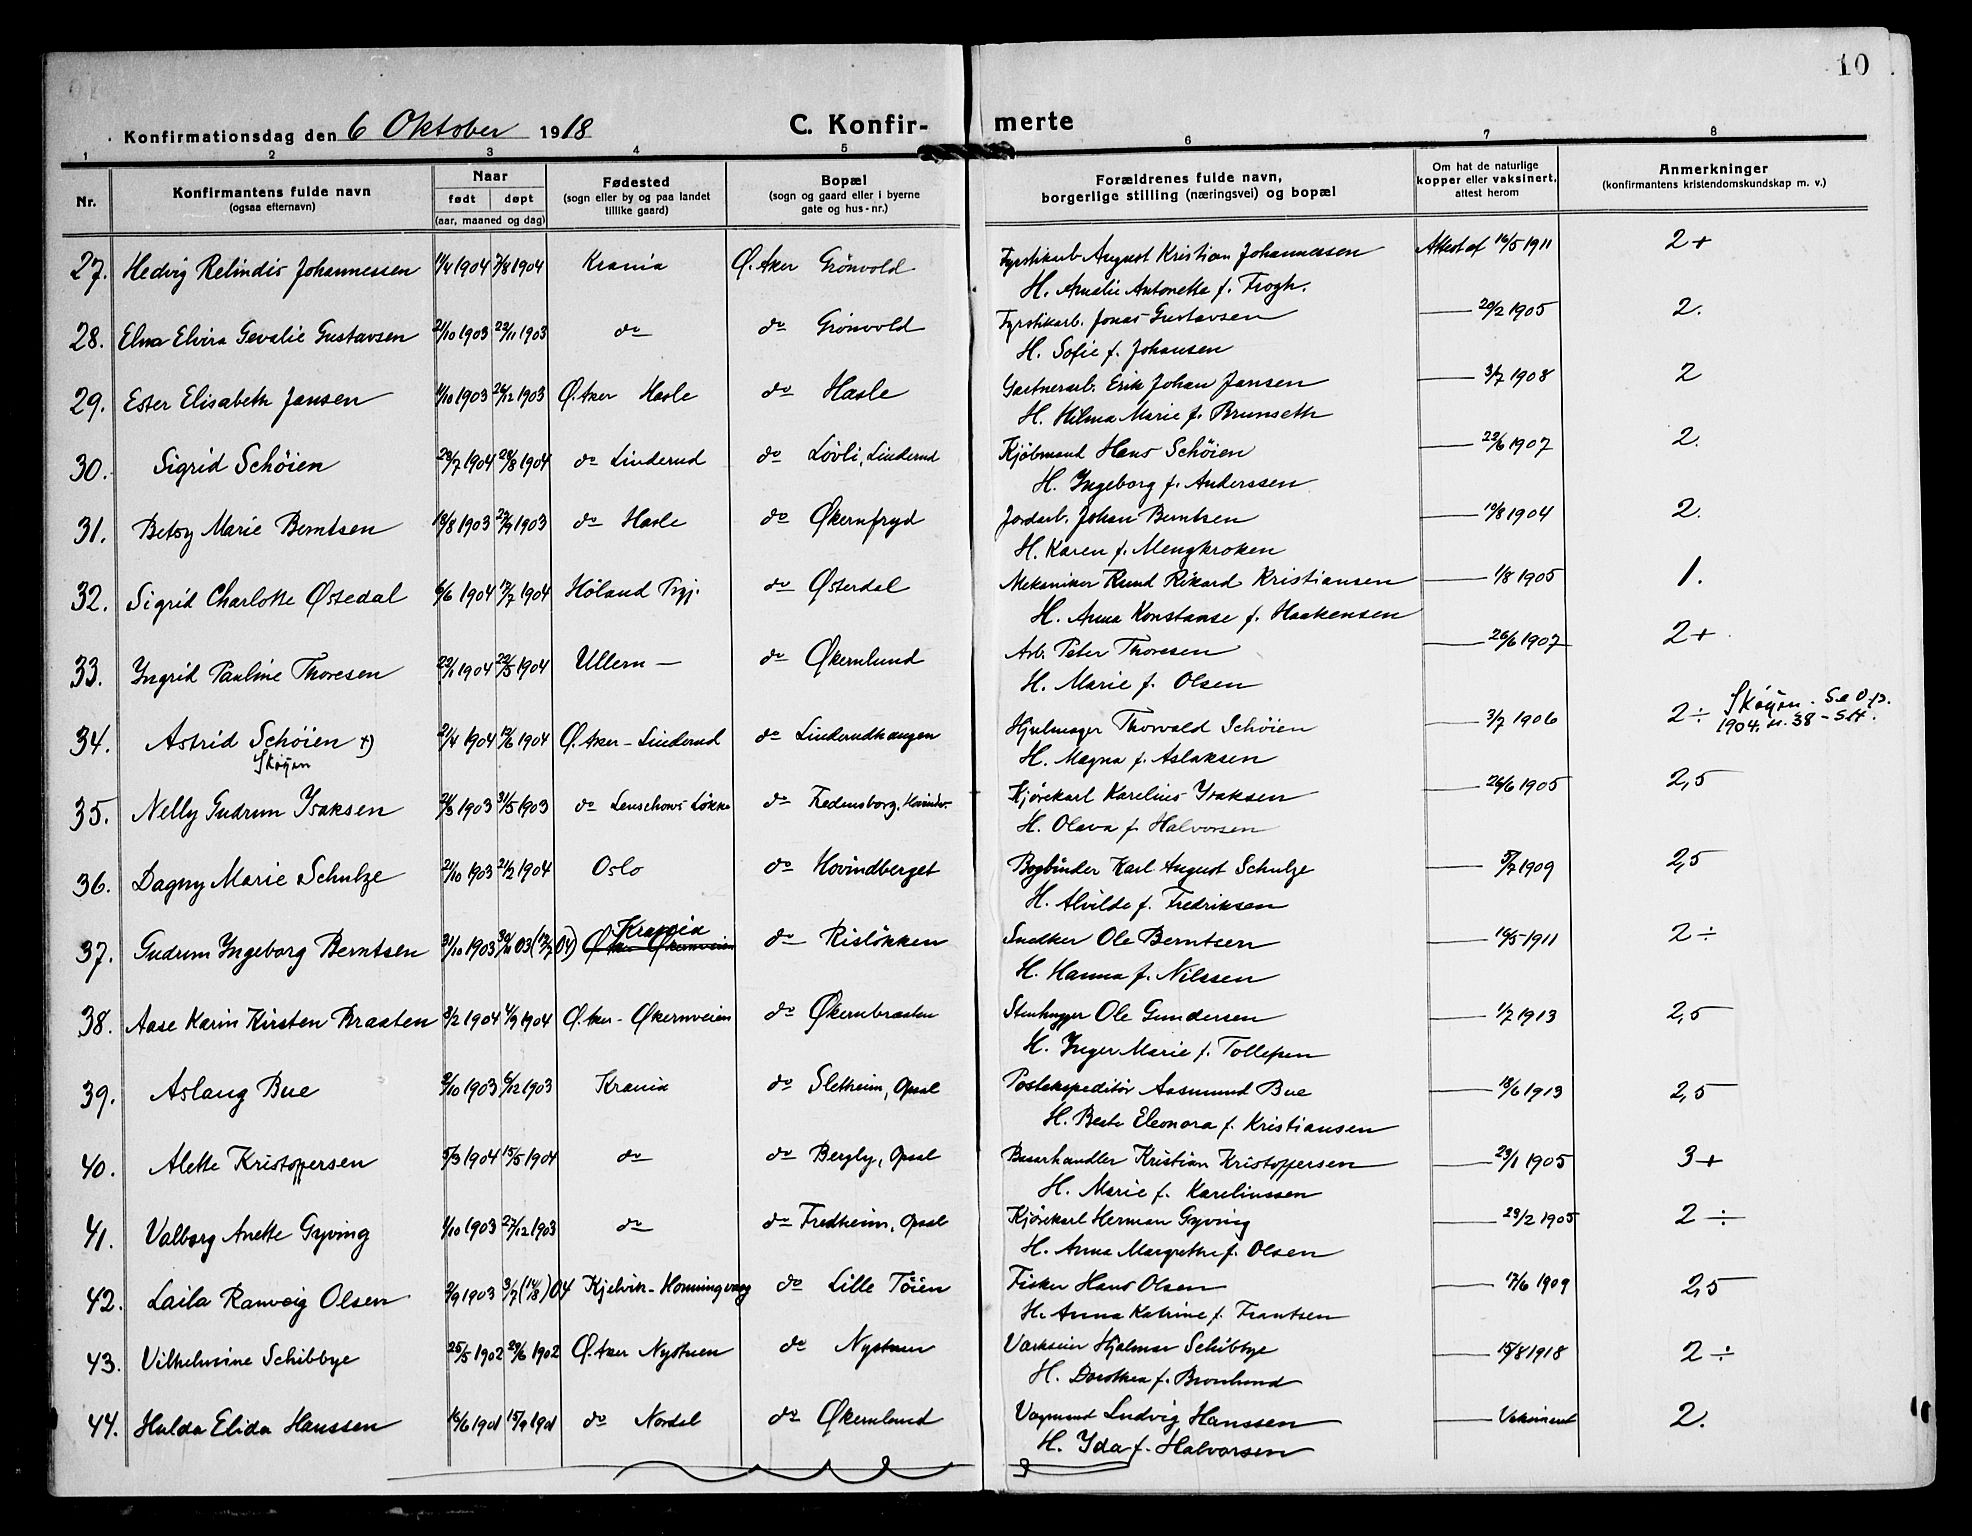 10
Konfirmationsdag den 6 Oktober 1918 C. Konfir- merte
1 2 3 4 5 6 7 8
Nr. Konfirmantens fulde navn (ogsaa efternavn) Naar født døpt (aar, maaned og dag) Fødested (sogn eller by og paa landet tillike gaard) Bopæl (sogn og gaard eller i byerne gate og hus-nr.) Forældrenes fulde navn, borgerlige stilling (næringsvei) og bopæl Om hat de naturlige kopper eller vaksinert, attest herom Anmerkninger (konfirmantens kristendomskundskap m. v.)
27. Hedvig Relindis Johannessen 11/4 1904 7/8 1904 Krania Ø. Aker Grönvold Fyrstikarb. August Kristian Johannessen Attest af 16/5 1911 2+
H. Amalie Antonette f. Frogh.
28. Elna Elvira Gevalie Gustavsen 21/10 1903 22/11 1903 do do Grönvold Fyrstikarb. Jonas Gustavsen — 20/2 1905 2.
H. Sofie f. Johansen
29. Ester Elisabeth Jansen 11/10 1903 26/12 1903 Ø. Aker Hasle do Hasle Gartnerarb. Erik Johan Jansen — 3/7 1908 2
H. Hilma Marie f. Brunseth
30. Sigrid Schöien 23/7 1904 28/8 1904 do Linderud do Lövli, Linderud Kjöbmand Hans Schöien — 22/6 1907 2.
H. Ingeborg f. Anderssen
31. Betsy Marie Berntsen 13/8 1903 27/9 1903 do Hasle do Økernfryd Jordarb. Johan Berntsen — 10/8 1904 2.
H. Karen f. Mengkroken
32. Sigrid Charlotte Østedal 6/6 1904 17/7 1904 Höland Prgj. do Østerdal Mekaniker Knud Rikard Kristiansen — 1/8 1905 1.
H. Anna Konstanse f. Haakensen
33. Yngrid Pauline Thoresen 22/1 1904 22/5 1904 Ullern — do Økernlund Arb. Peter Thoresen — 26/6 1907 2+
H. Marie f. Olsen
34. Astrid Schöien +) 21/4 1904 12/6 1904 Ø. Aker - Linderud do Linderudhaugen Hjulmager Thorvald Schöien — 3/7 1906 2÷ Skøyen. Se D.p.
Skøyen H. Magna f. Aslaksen 1904. n. 38 - SH.
35. Nelly Gudrun Ysaksen 21/3 1903 31/5 1903 do Lenschows Løkke do Fredensborg, Hovinder. Kjörekarl Karelius Ysaksen — 26/6 1905 2,5
H. Olava f. Halvorsen
36. Dagny Marie Schulze 21/10 1903 21/2 1904 Oslo do Hovindberget Bogbinder Karl August Schulze — 5/7 1909 2,5
H. Alvilde f. Fredriksen
Krania
37. Gudrun Yngeborg Berntsen 31/10 1903 30/11 03 (17/7 04) Ø. Aker Økernveien do Rislökken Snedker Ole Berntsen — 16/5-1911 2÷
H. Hanna f. Nilssen
38. Aase Karin Kirsten Braaten 3/2 1904 4/9 1904 Ø. Aker - Økernveien do Økernbraaten Stenhugger Ole Gundersen — 1/7 1913 2,5
H. Inger Marie f. Tollefsen
39. Aslaug Bue 9/10 1903 6/12 1903 Krania do Sletheim, Opsal Postekspeditör Aasmund Bue — 18/6 1913 2,5
H. Beate Eleonora f. Kristiansen
40. Alette Kristoffersen 5/3 1904 15/5 1904 do do Bergly, Opsal Basarhandler Kristian Kristoffersen — 23/1 1905 3+
H. Marie f. Kareliussen
41. Valborg Anette Gyving 1/10 1903 27/12 1903 do do Fredheim, Opsal Kjörekarl Herman Gyving — 23/2 1905 2÷
H. Anna Margrethe f. Olsen
42. Laila Ranveig Olsen 9/9 1903 3/7 (14/8) 04 Kjelvik - Honningvaag do Lille Töien Fisker Hans Olsen — 17/6 1909 2,5
H. Anna Katrine f. Frantsen
43. Vilhelmine Schibbye 25/5 1902 29/6 1902 Ø. Aker Nystuen do Nystuen Værkseier Hjalmar Schibbye — 15/8 1918 2÷
H. Dorothea f. Bronlund
44. Hulda Elida Hanssen 16/6 1901 15/9 1901 do Nordal do Økernlund Vognmand Ludvig Hanssen — Vaksinert 2.
H. Yda f. Halvorsen